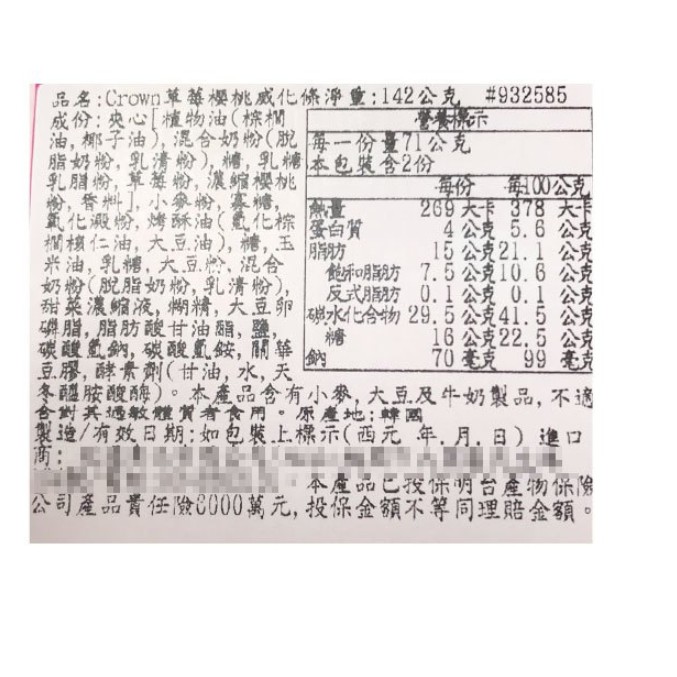 品名:Crown草莓櫻桃威化條淨重:142公克 #932585
成份:夾心[植物油(棕櫚
油,椰子油),混合奶粉(脫
脂奶粉,乳清粉),糖,乳糖,
乳脂粉,草莓粉,濃縮櫻桃
粉,香料],小麥粉,寡糖,
氧化澱粉,烤酥油(氫化棕
櫚核仁油,大豆油),糖,玉
米油,乳糖,大豆粉,混合
奶粉(脫脂奶粉,乳清粉),
甜菜濃縮液,糊精,大豆卵
磷脂,脂肪酸甘油酯,鹽,
碳酸氫鈉,碳酸氫銨,關華
豆膠,酵素劑(甘油,水,天
冬醯胺酸酶)。本產品含有小麥,大豆及牛奶製品,不適
合對其過敏體質者食用。原產地:韓國
製造/有效日期:如包裝上標示(西元 年.月.日) 進口
商:
本產品已投保明台產物保險
公司產品責任險6000萬元,投保金額不等同理賠金額。
營養標示
每一份量71公克
本包裝含2份
每份 每100公克
熱量 269 大卡 378 大卡
蛋白質 4 公克 5.6 公克
脂肪 15 公克 21.1 公克
飽和脂肪 7.5 公克 10.6 公克
反式脂肪 0.1 公克 0.1 公克
碳水化合物 29.5 公克 41.5 公克
糖 16 公克 22.5 公克
鈉 70 毫克 99 毫克